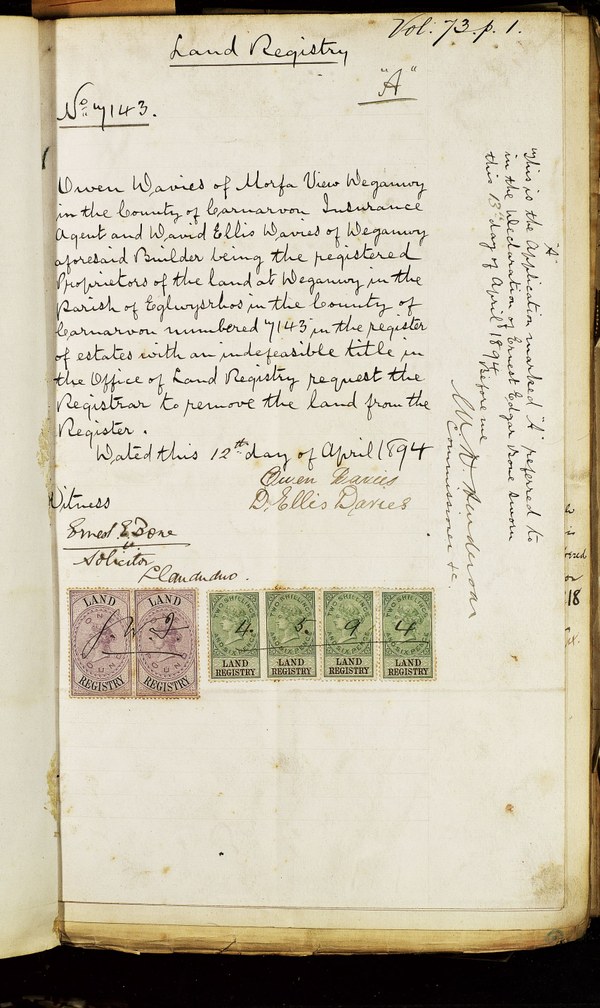 Vol. 73. p. 1.
Land Registry
"A"
No. 7143.
Owen Davies of Morfa View Deganwy
in the County of Carnarvon Insurance
Agent and David Ellis Davies of Deganwy
aforesaid Builder being the registered
Proprietors of the land at Deganwy in the
Parish of Eglwysrhos in the County of
Carnarvon numbered 7143 in the register
of estates with an indefeasible title in
the Office of Land Registry request the
Registrar to remove the land from the
Register.
Dated this 12th day of April 1894
Owen Davies
D. Ellis Davies
Witness
Ernest E. Bone
Solicitor
Llandudno.
"A"
This is the Application marked "A" referred to
in the Declaration of Ernest Edgar Bone sworn
this 13th day of April 1894
Before me
Henderson
Commissioner &c.
LAND
ONE
POUND
REGISTRY
LAND
ONE
POUND
REGISTRY
TWO SHILLINGS
AND SIX PENCE
LAND
REGISTRY
TWO SHILLINGS
AND SIX PENCE
LAND
REGISTRY
TWO SHILLINGS
AND SIX PENCE
LAND
REGISTRY
TWO SHILLINGS
AND SIX PENCE
LAND
REGISTRY
4. 5. 9. 4
18